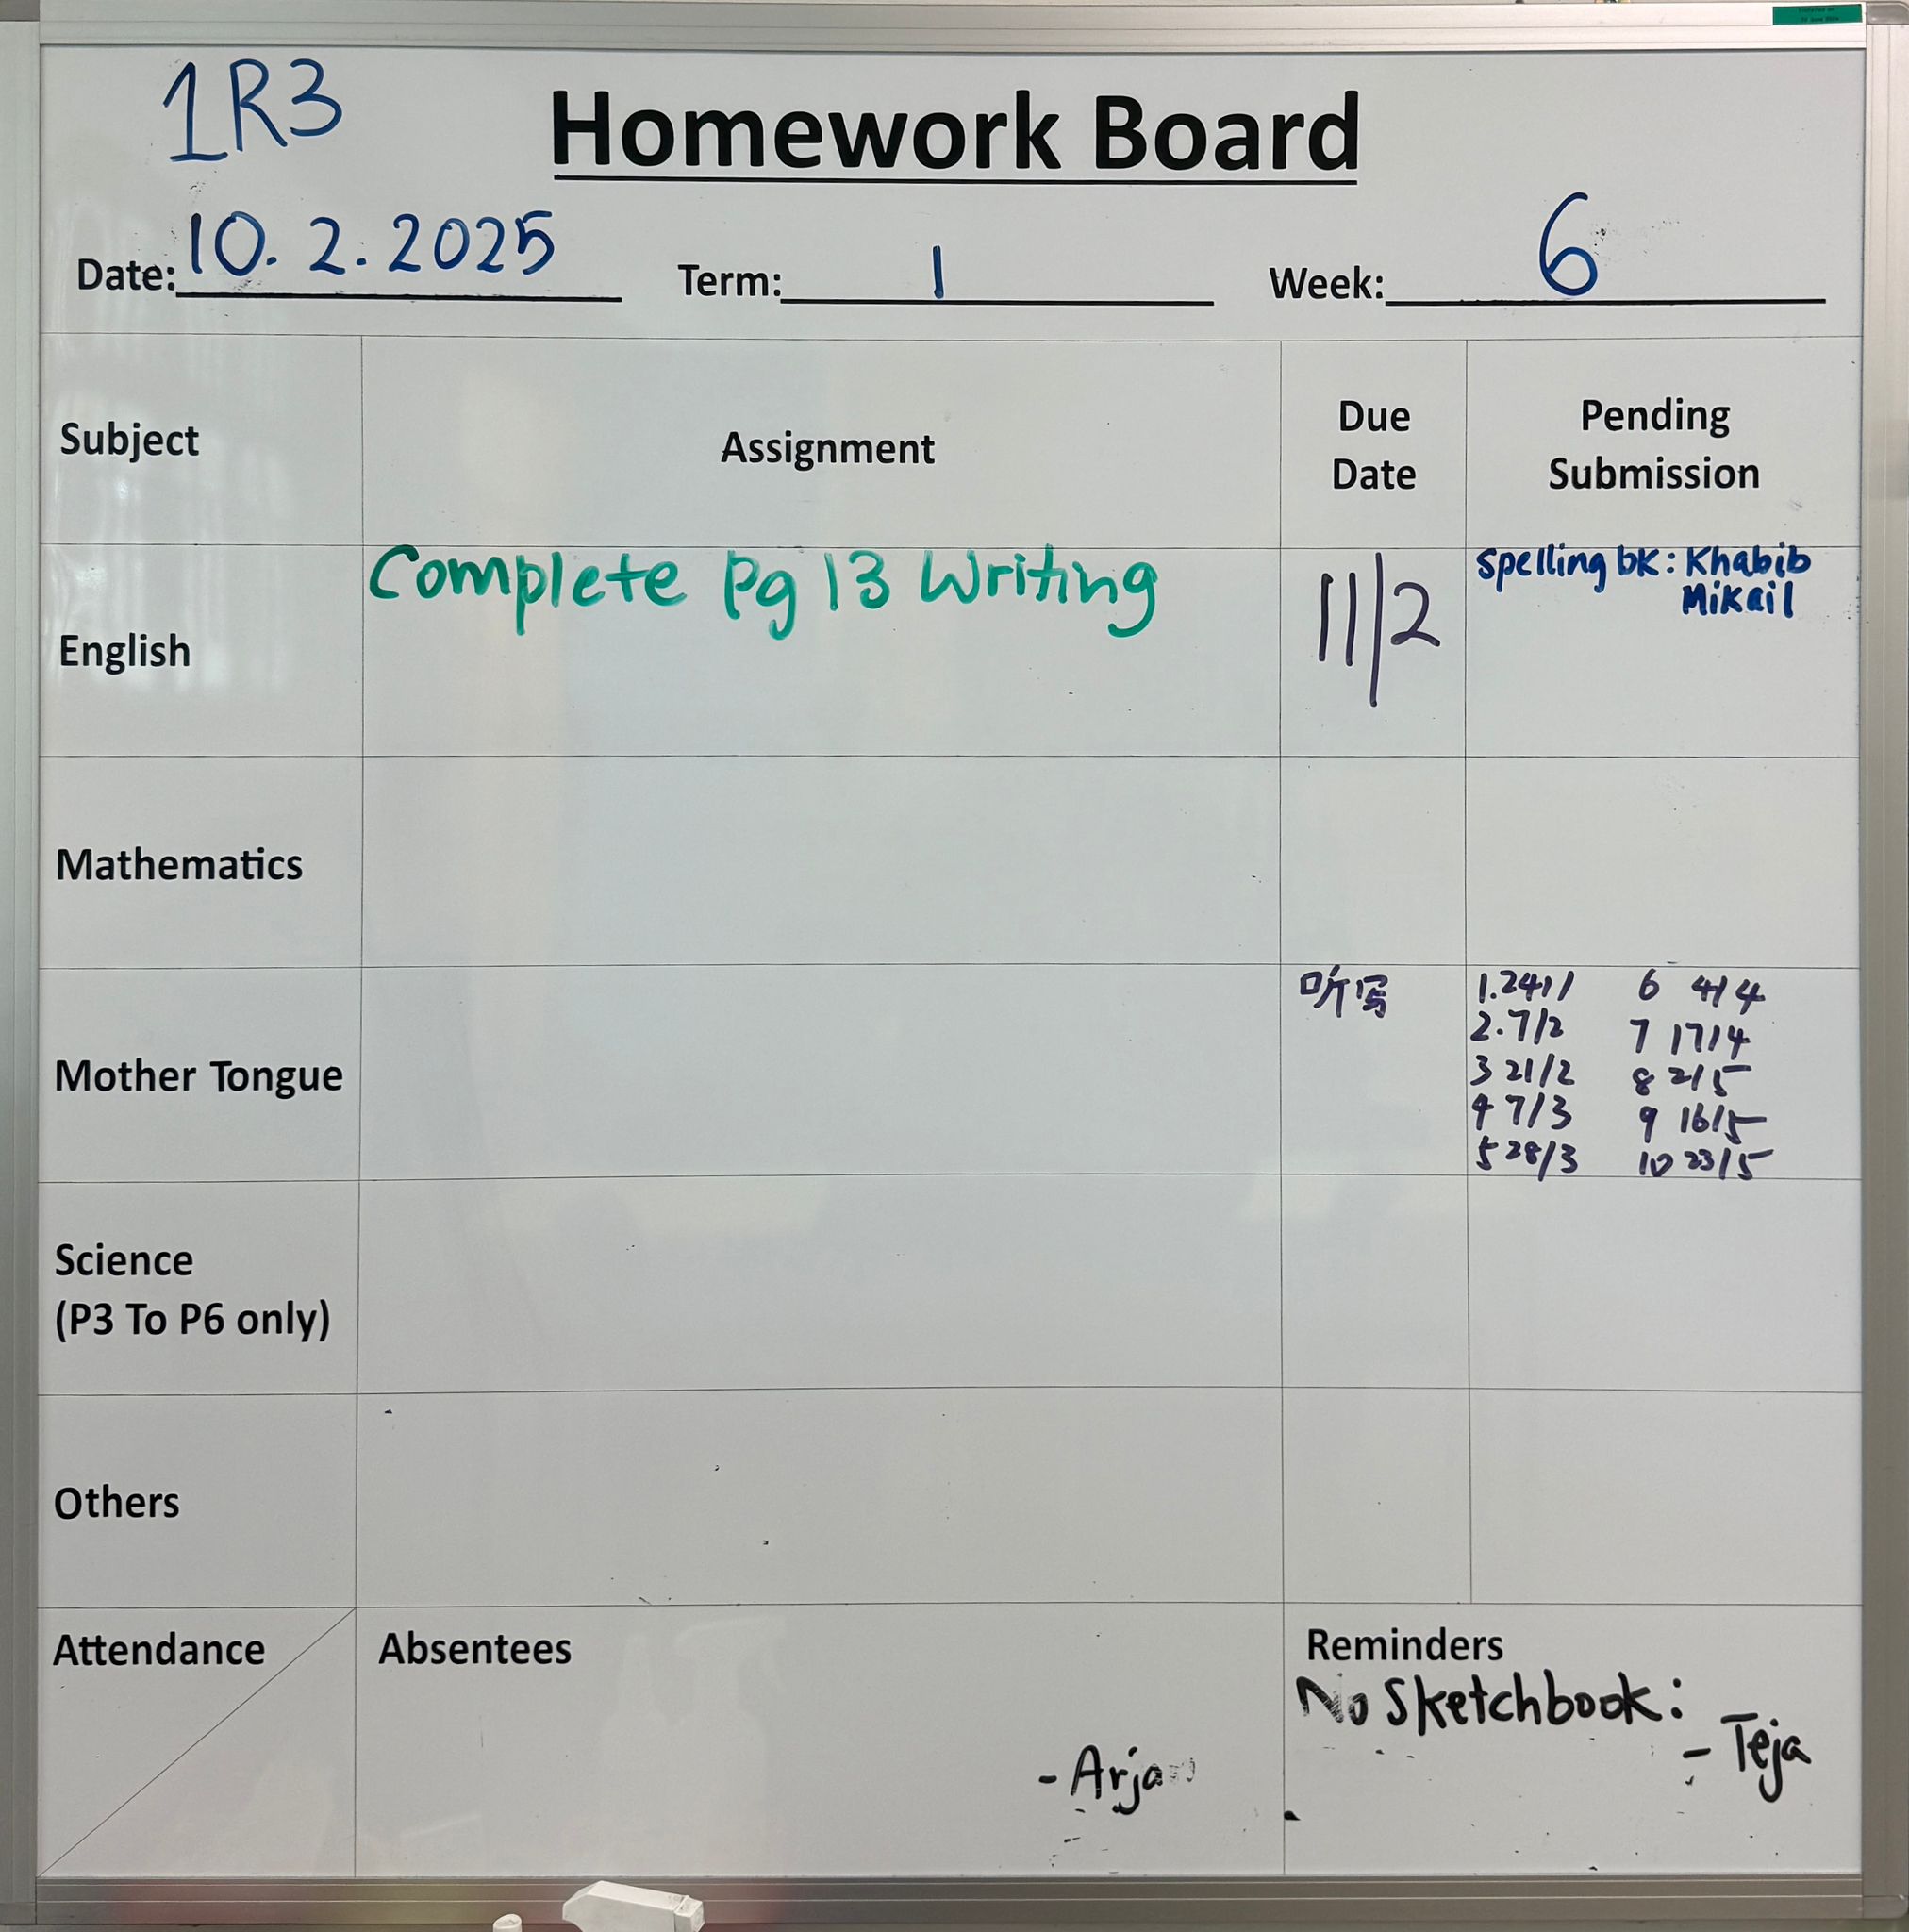 1R3
Homework Board
Date: 10. 2. 2025 Term: 1 Week: 6
Subject Assignment Due Date Pending Submission
English Complete Pg 13 Writing 11/2 Spelling bk: Khabib
Mikail
Mathematics
Mother Tongue 听写 1. 24/1 6 4/4
2. 7/2 7 17/4
3 21/2 8 2/5
4 7/3 9 16/5
5 28/3 10 23/5
Science
(P3 To P6 only)
Others
Attendance Absentees Reminders
No Sketchbook:
- Teja
- Arja